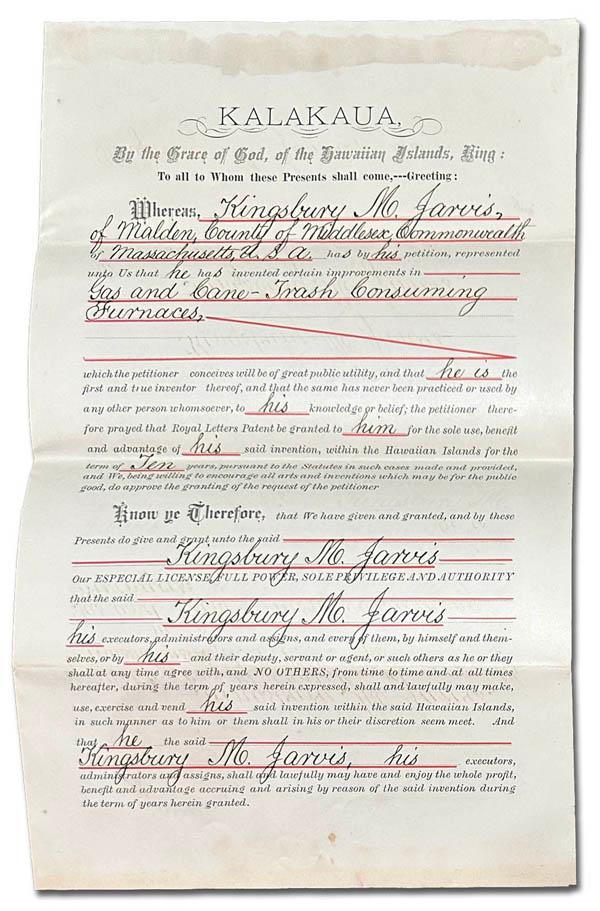 KALAKAUA,
By the Grace of God, of the Hawaiian Islands, King:
To all to Whom these Presents shall come,---Greeting:
Whereas, Kingsbury M. Jarvis,
of Malden, County of Middlesex, Commonwealth
of Massachusetts, U.S.A. has by his petition, represented
unto Us that he has invented certain improvements in
Gas and Cane-Trash Consuming
Furnaces,
which the petitioner conceives will be of great public utility, and that he is the
first and true inventor thereof, and that the same has never been practiced or used by
any other person whomsoever, to his knowledge or belief; the petitioner there-
fore prayed that Royal Letters Patent be granted to him for the sole use, benefit
and advantage of his said invention, within the Hawaiian Islands for the
term of Ten years, pursuant to the Statutes in such cases made and provided,
and We, being willing to encourage all arts and inventions which may be for the public
good, do approve the granting of the request of the petitioner
Know ye Therefore, that We have given and granted, and by these
Presents do give and grant unto the said
Kingsbury M. Jarvis
Our ESPECIAL LICENSE, FULL POWER, SOLE PRIVILEGE AND AUTHORITY
that the said
Kingsbury M. Jarvis
his executors, administrators and assigns, and every of them, by himself and them-
selves, or by his and their deputy, servant or agent, or such others as he or they
shall at any time agree with, and NO OTHERS, from time to time and at all times
hereafter, during the term of years herein expressed, shall and lawfully may make,
use, exercise and vend his said invention within the said Hawaiian Islands,
in such manner as to him or them shall in his or their discretion seem meet. And
that he the said
Kingsbury M. Jarvis, his executors,
administrators and assigns, shall and lawfully may have and enjoy the whole profit,
benefit and advantage accruing and arising by reason of the said invention during
the term of years herein granted.